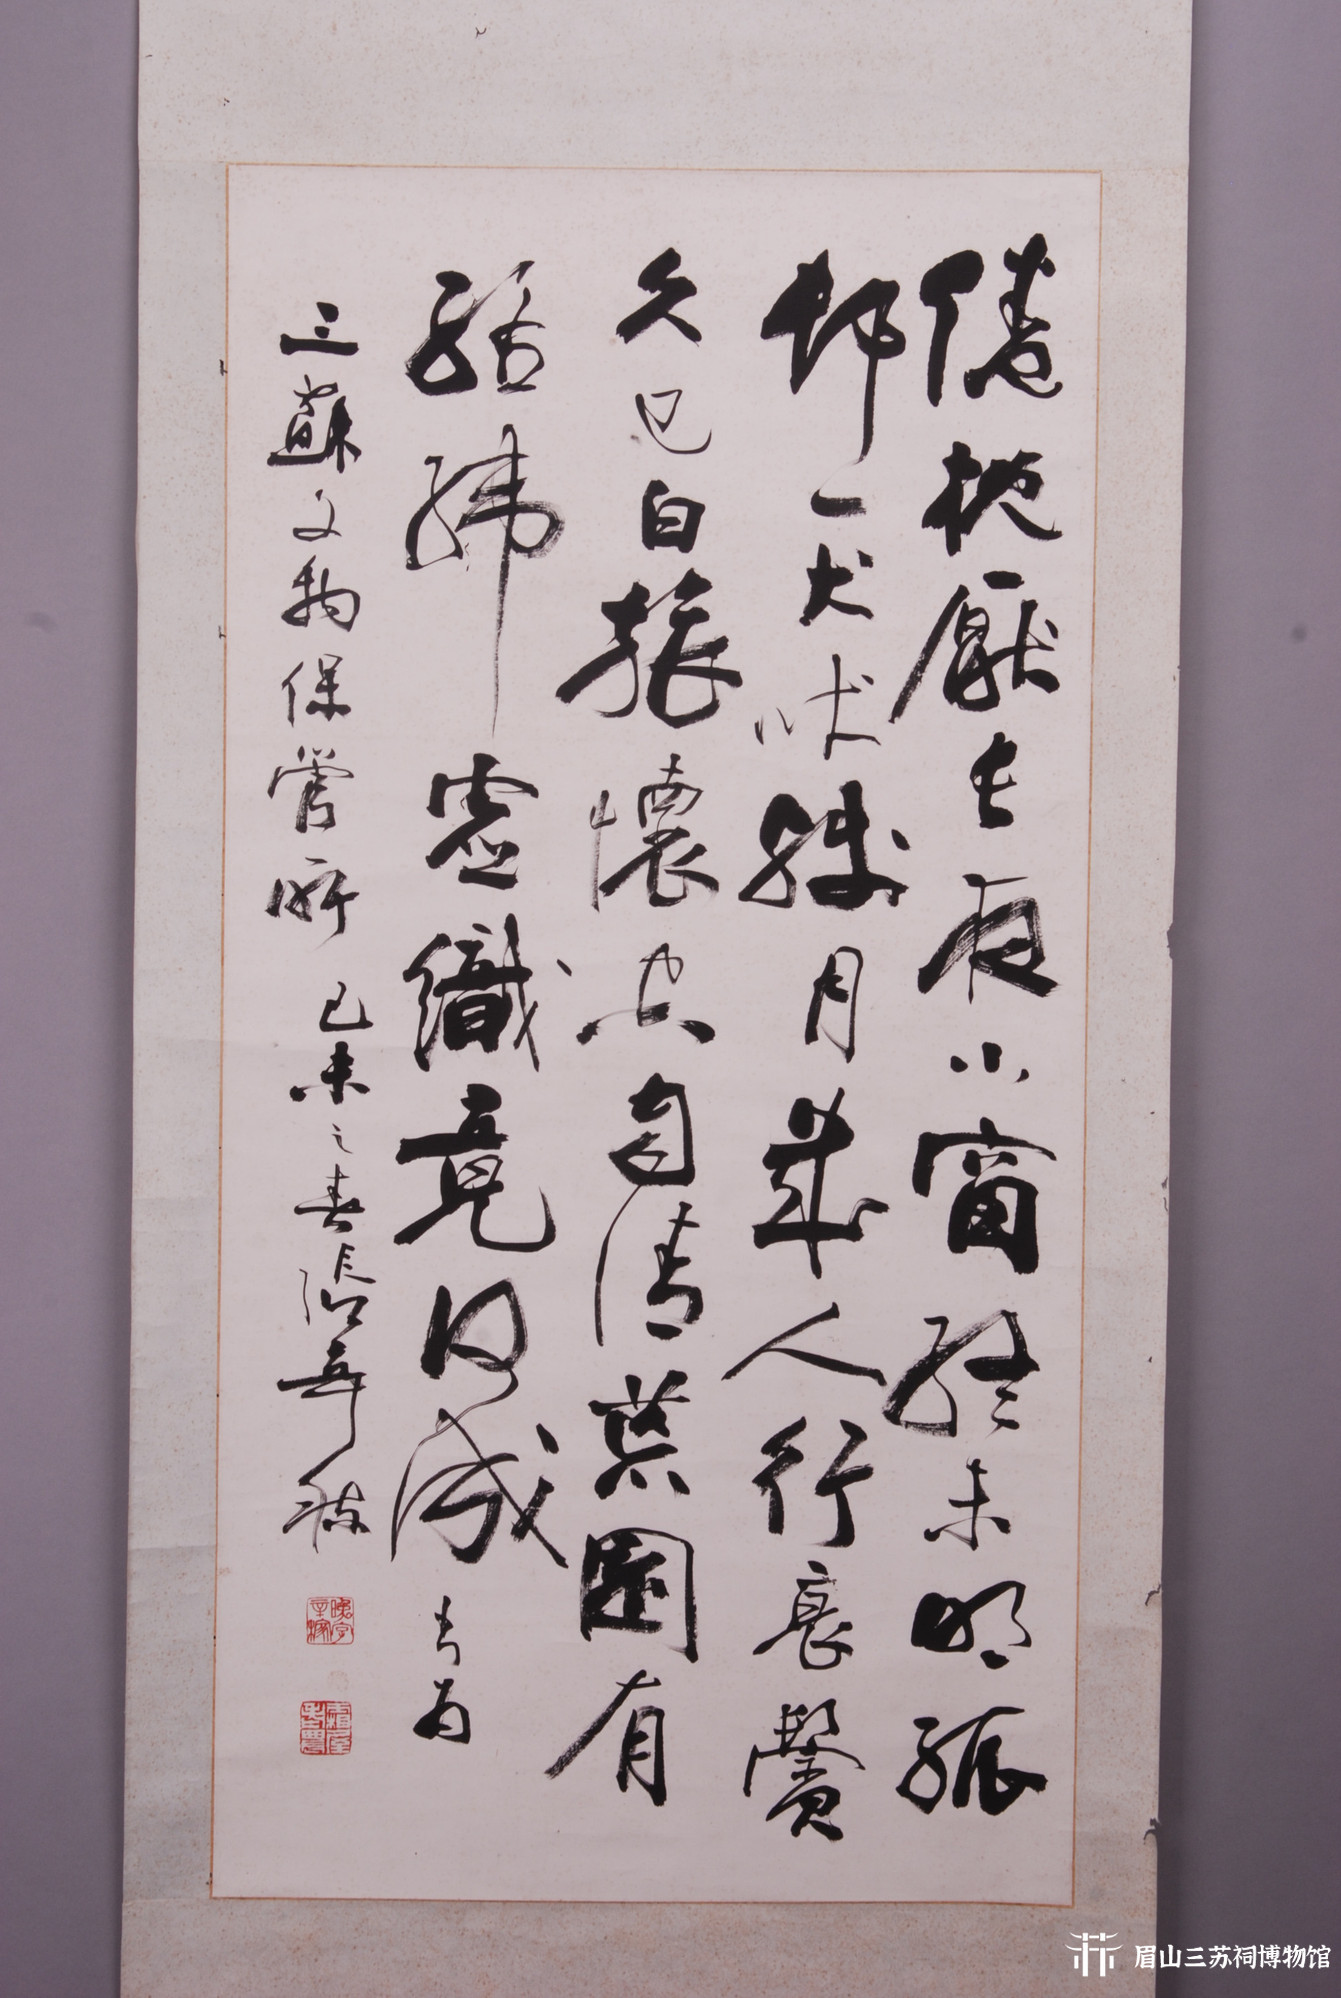 倦枕厭長夜小窗終未明孤
邨一犬吠殘月幾人行衰鬢
久已白旅懷空自清荒園有
絡緯虛織竟何成 書爲
三蘇文物保管所 己未之春張辛稼
眉山三苏祠博物馆